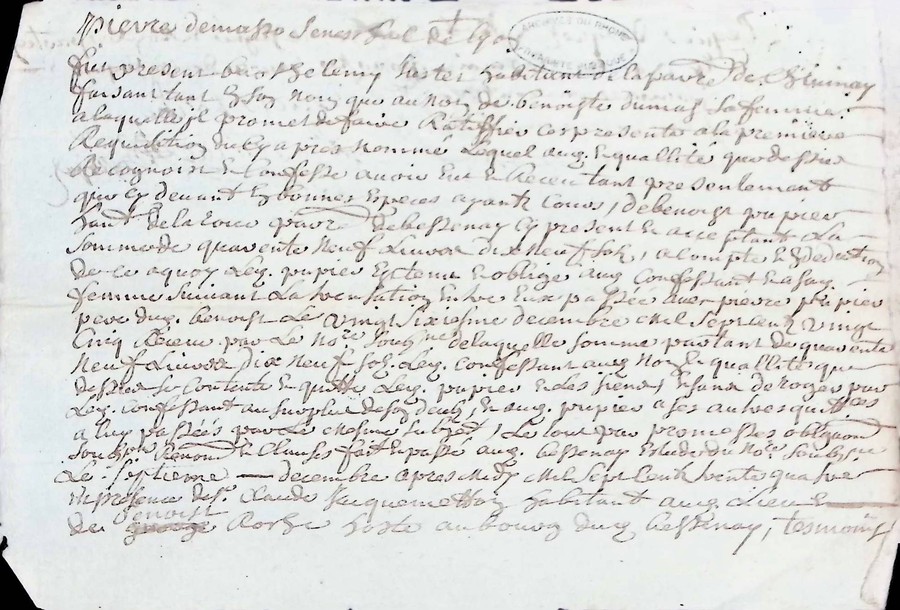 pierre de masso Seneschal de lyon
ARCHIVES DU RHONE
fut present barthelemy habitant de la parre de
faisant tant en son nom que au nom de benoiste dumas sa femme
a laquelle il promet de faire Ratiffier ces presente a la premiere
Requisition du cy apres nomme Lequel aud. nom et quallité que dessus
Recognoist et Confesse avoir eut et Receu tant presentement
que cy devant En bonnes Especes ayants Cours, de benoist pupier
hant de la parre de bessenay cy present et acceptant La
somme de quarente neuf Livres dix neuf sols, a compte et deduction
de ce a quoy Led. pupier Est tenu et oblige aud. Confessant et a sad.
femme suivant La passée avec pierre pupier
pere dud. benoist Le vingt sixiesme decembre Mil sept cent vingt
Cinq Receue par Le Nore soubzne de laquelle somme partant de quarente
neuf Livres Dix neuf sols Led. confessant aud. nom et quallité que
dessus se Contente et quitte Led. pupier et Les siens, sans deroger par
Led. Confessant au surplus de son deub, et aud. pupier a ses autres quittces
a luy passées par Le mesme, Le tout par promesses obligaon
soubzon Renonon et Clauses fait et passé aud. bessenay Estude du Nore soubzne
Le septieme decembre apres Midy Mil sept cent trente quatre
En presence de sr. Claude habitant aud. Lieu et
de benoist hoste au bourg dud. bessenay, tesmoins